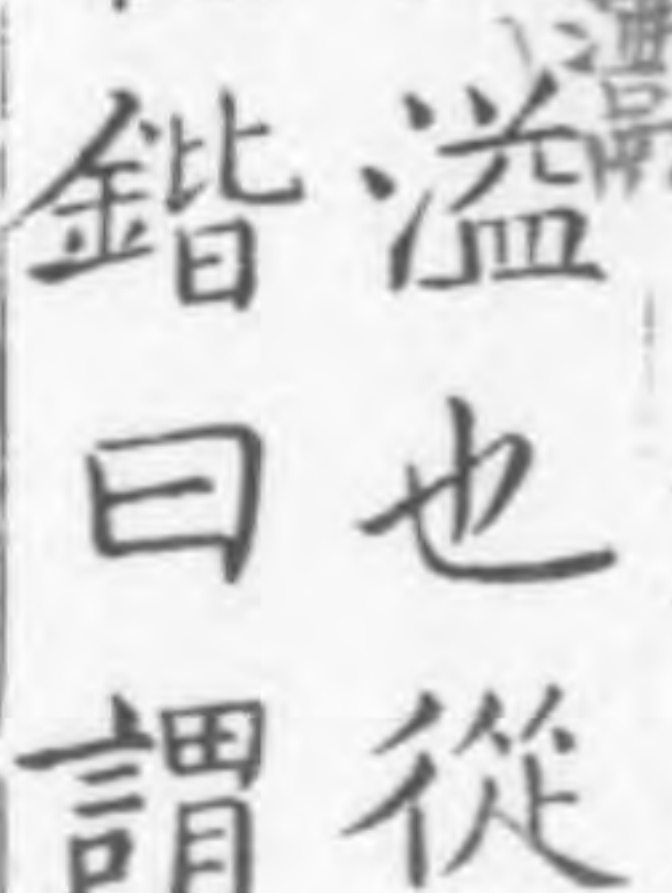 溢也從
鍇曰謂